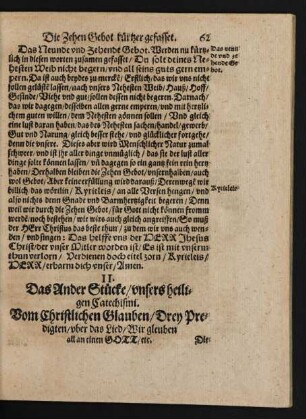 Die Zehen Gebot kürtzer gefasset. 62
Das Neunde vnd Zehende Gebot. Werden nu kürtz-
lich in diesen worten zusamen gefasset / Du solt deines Ne-
hesten Weib nicht begern / vnd all seins guts gern em-
pern. Da ist auch beydes zu mercke / Erstlich / das wir vns nicht
sollen gelüst lassen / nach vnsers Nehesten Weib / Hauß / Hoff /
Gesinde / Viehe vnd gut / sollen dessen nicht begeren. Darnach /
das wir dagegen / desselben allen gerne empern / vnd mit hertzli-
chem guten willen / dem Nehesten gönnen sollen / Vnd gleich
eine lust daran haben / das des Nehesten sachen / handel / gewerb /
Gut vnd Narung / gleich besser stehe / vnd glücklicher fortgehe /
denn die vnsern. Dieses aber wird Menschlicher Natur zumal
schwer / vnd ist jhr aller dinge vnmüglich / das sie der lust aller
dinge solte können lassen / vñ dagegen so ein gantz fein rein hertz
haben / Derhalben bleiben die Zehen Gebot / vnserthalben / auch
wol Gebot / Aber seine erfüllung wird daraus / Derenweg wir
billich das wörtlin / Kyrieleis / an alle Versen hengen / vnd
also nichts denn Gnade vnd Barmhertzigkeit begeren / Denn
weil wir durch die Zehen Gebot / für Gott nicht können fromm
werdē noch bestehen / wir wits auch gleich angreiffen / So muß
der HErr Christus das beste thun / zu dem wir vns auch wen-
den / vnd singen: Das helff vns der HERR Jhesus
Christ / der vnser Mitler worden ist / Es ist mit vnserm
thun verlorn / Verdienen doch eitel zorn / Kyrieleis /
HERR / erbarm dich vnser / Amen.
Das neun-
de vnd ze-
hende Ge-
bot.
Kyrieleis
II.
Das Ander Stücke / vnsers heili-
gen Catechismi.
Vom Christlichen Glauben / Drey Pre-
digten / vber das Lied / Wir gleuben
all an einen GOTT / etc.
Die